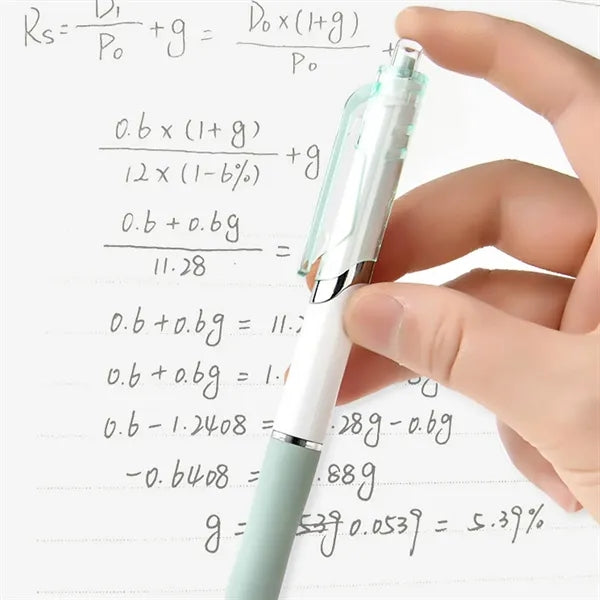 Rs = D1/P0 + g = D0 × (1+g)/P0 +
0.6 × (1+g)/12 × (1-6%) + g
0.6 + 0.6g/11.28 =
0.6 + 0.6g = 11.2
0.6 + 0.6g = 1. 6g
0.6 - 1.2408 = .28g - 0.6g
-0.6408 = .88g
g = 0.0539 = 5.39%